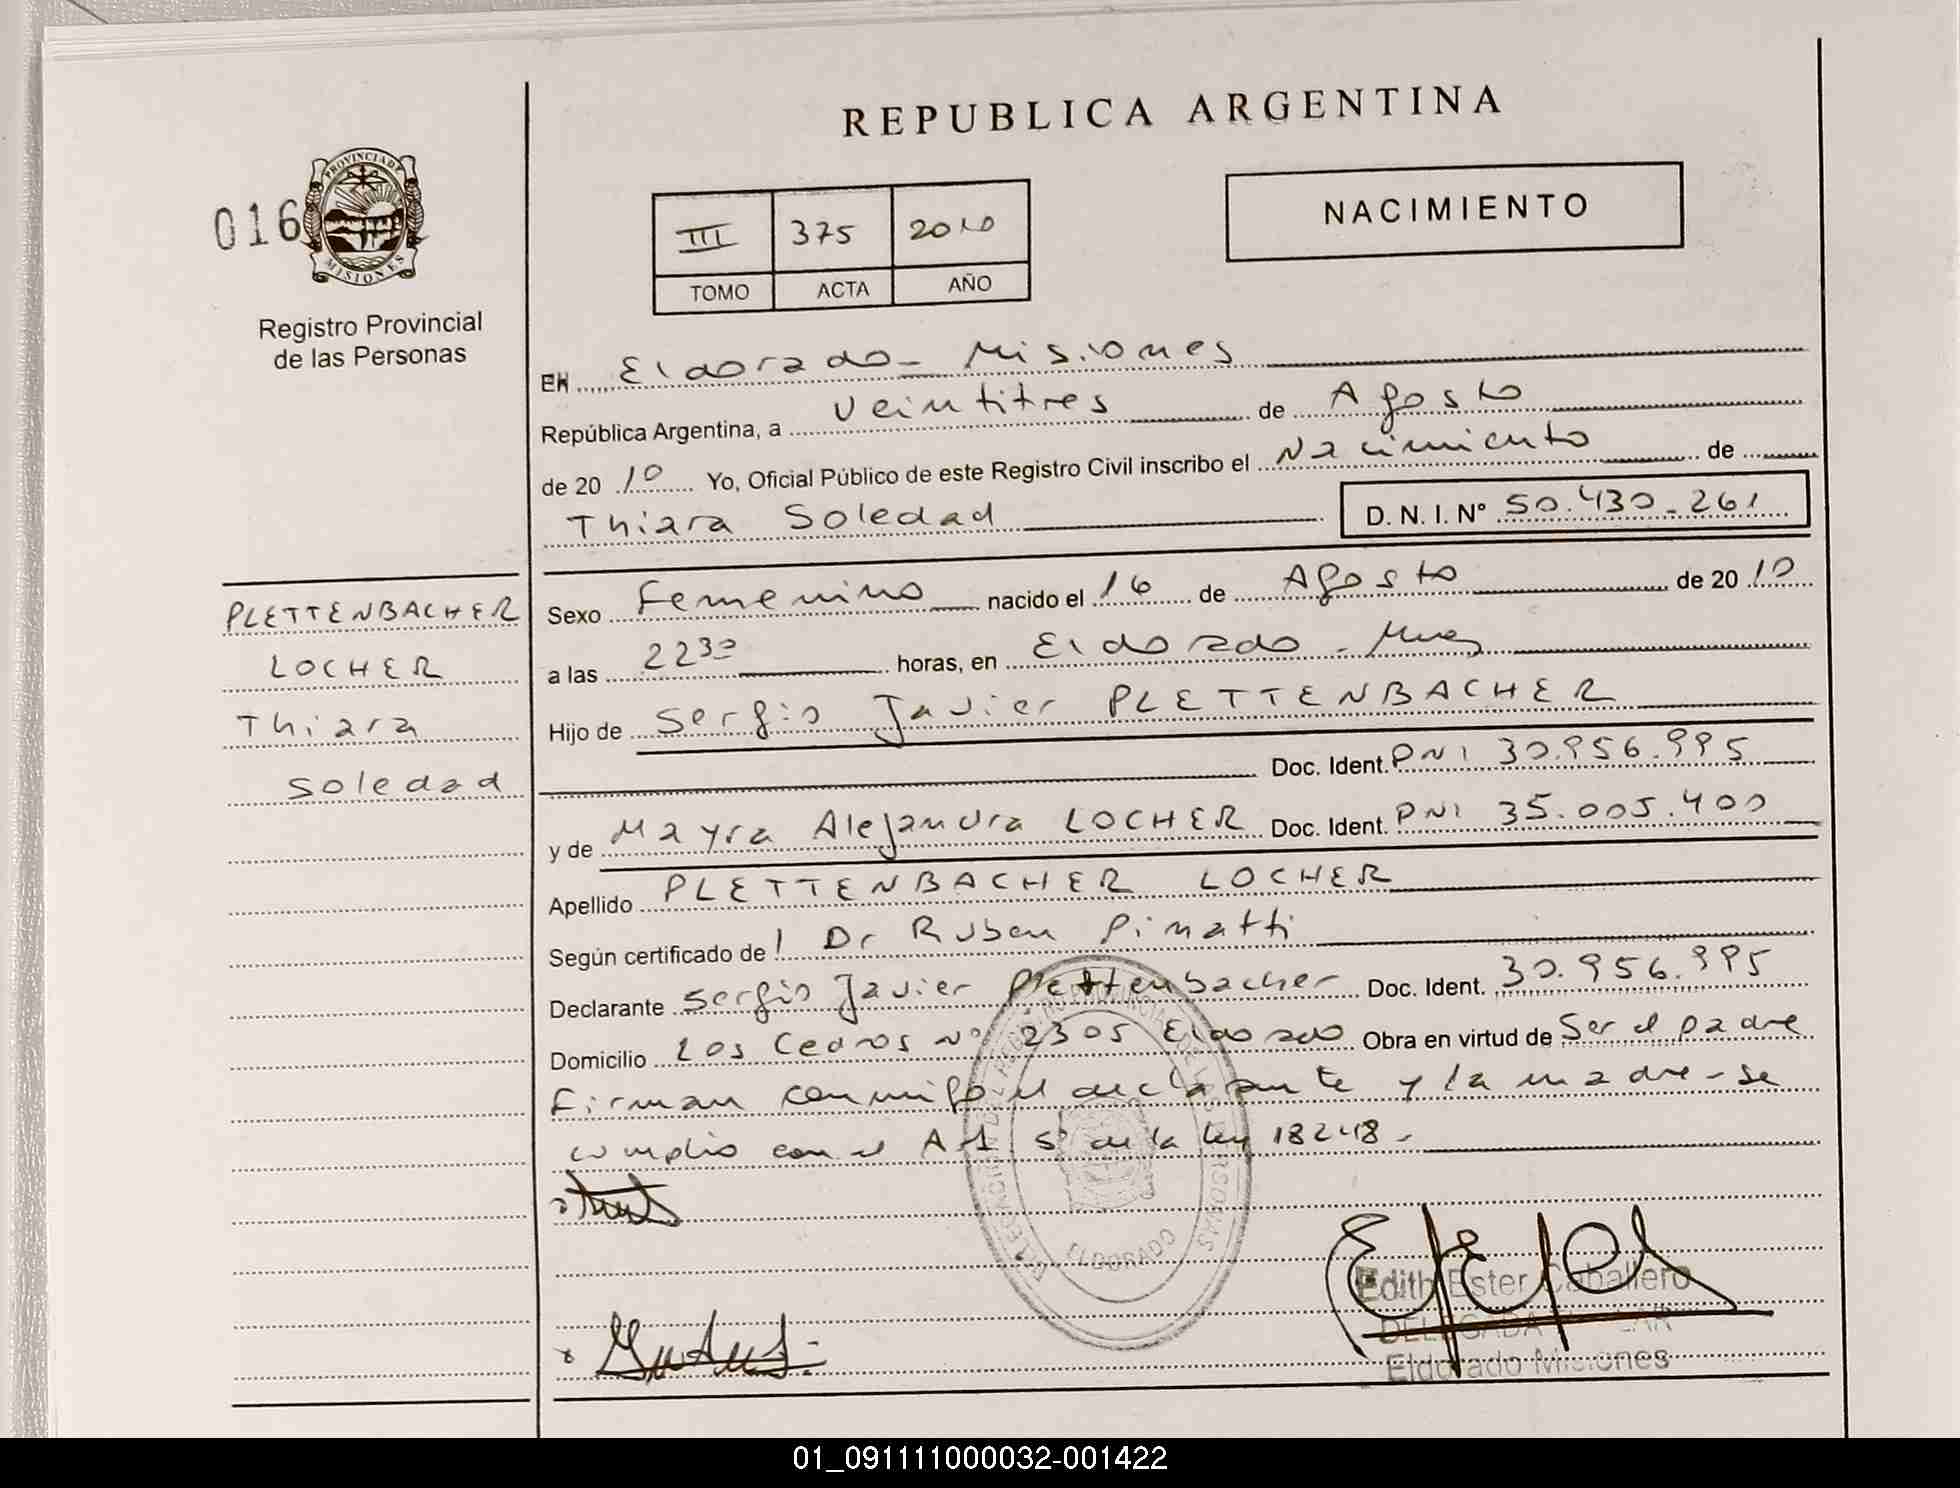 REPUBLICA ARGENTINA
016
PROVINCIA DE
MISIONES
Registro Provincial
de las Personas
III 375 2010
TOMO ACTA AÑO
NACIMIENTO
EN Eldorado - Misiones
República Argentina, a veintitres de Agosto
de 2010 Yo, Oficial Público de este Registro Civil inscribo el Nacimiento de
Thiara Soledad D. N. I. Nº 50.430.261
PLETTENBACHER
LOCHER
Thiara
Soledad
Sexo Femenino nacido el 16 de Agosto de 2010
a las 22³⁰ horas, en Eldorado - Mnes
Hijo de Sergio Javier PLETTENBACHER
Doc. Ident. DNI 30.956.995
y de Mayra Alejandra LOCHER Doc. Ident. DNI 35.005.400
Apellido PLETTENBACHER LOCHER
Según certificado de Dr Ruben Pinatti
Declarante Sergio Javier Plettenbacher Doc. Ident. 30.956.995
Domicilio Los Cedros Nº 2305 Eldorado Obra en virtud de Ser el padre
Firman conmigo el declarante y la madre - se
cumplio con el Art 5º de la ley 18248 -
ELDORADO
Edith Ester Caballero
DELEGADA
Eldorado Misiones
01_091111000032-001422